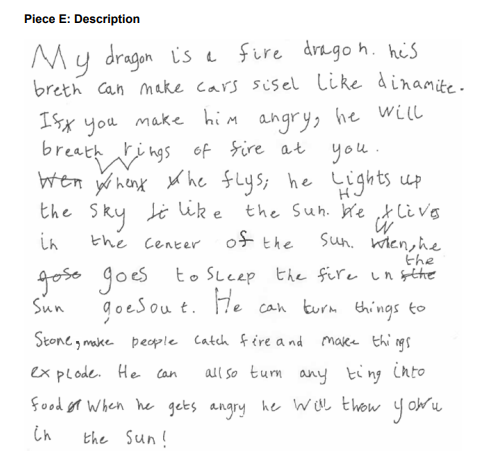 Piece E: Description
My dragon is a fire dragon. his
breth can make cars sisel like dinamite.
If you make him angry, he will
breath rings of fire at you.
When he flys, he Lights up
the sky like the Sun. He Livs
in the center of the Sun. When he
goes to sleep the fire in the
Sun goes out. He can turn things to
Stone, make people catch fire and make things
explode. He can allso turn any ting into
food When he gets angry he will thow yowu
in the Sun!